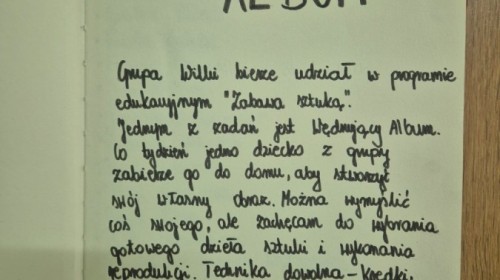 ALBUM
Grupa Wilki bierze udział w programie
edukacyjnym "Zabawa sztuką".
Jednym z zadań jest Wędrujący Album.
Co tydzień jedno dziecko z grupy
zabierze go do domu, aby stworzyć
swój własny obraz. Można wymyślić
coś swojego, ale zachęcam do wybrania
gotowego dzieła sztuki i wykonania
reprodukcji. Technika dowolna - kredki,